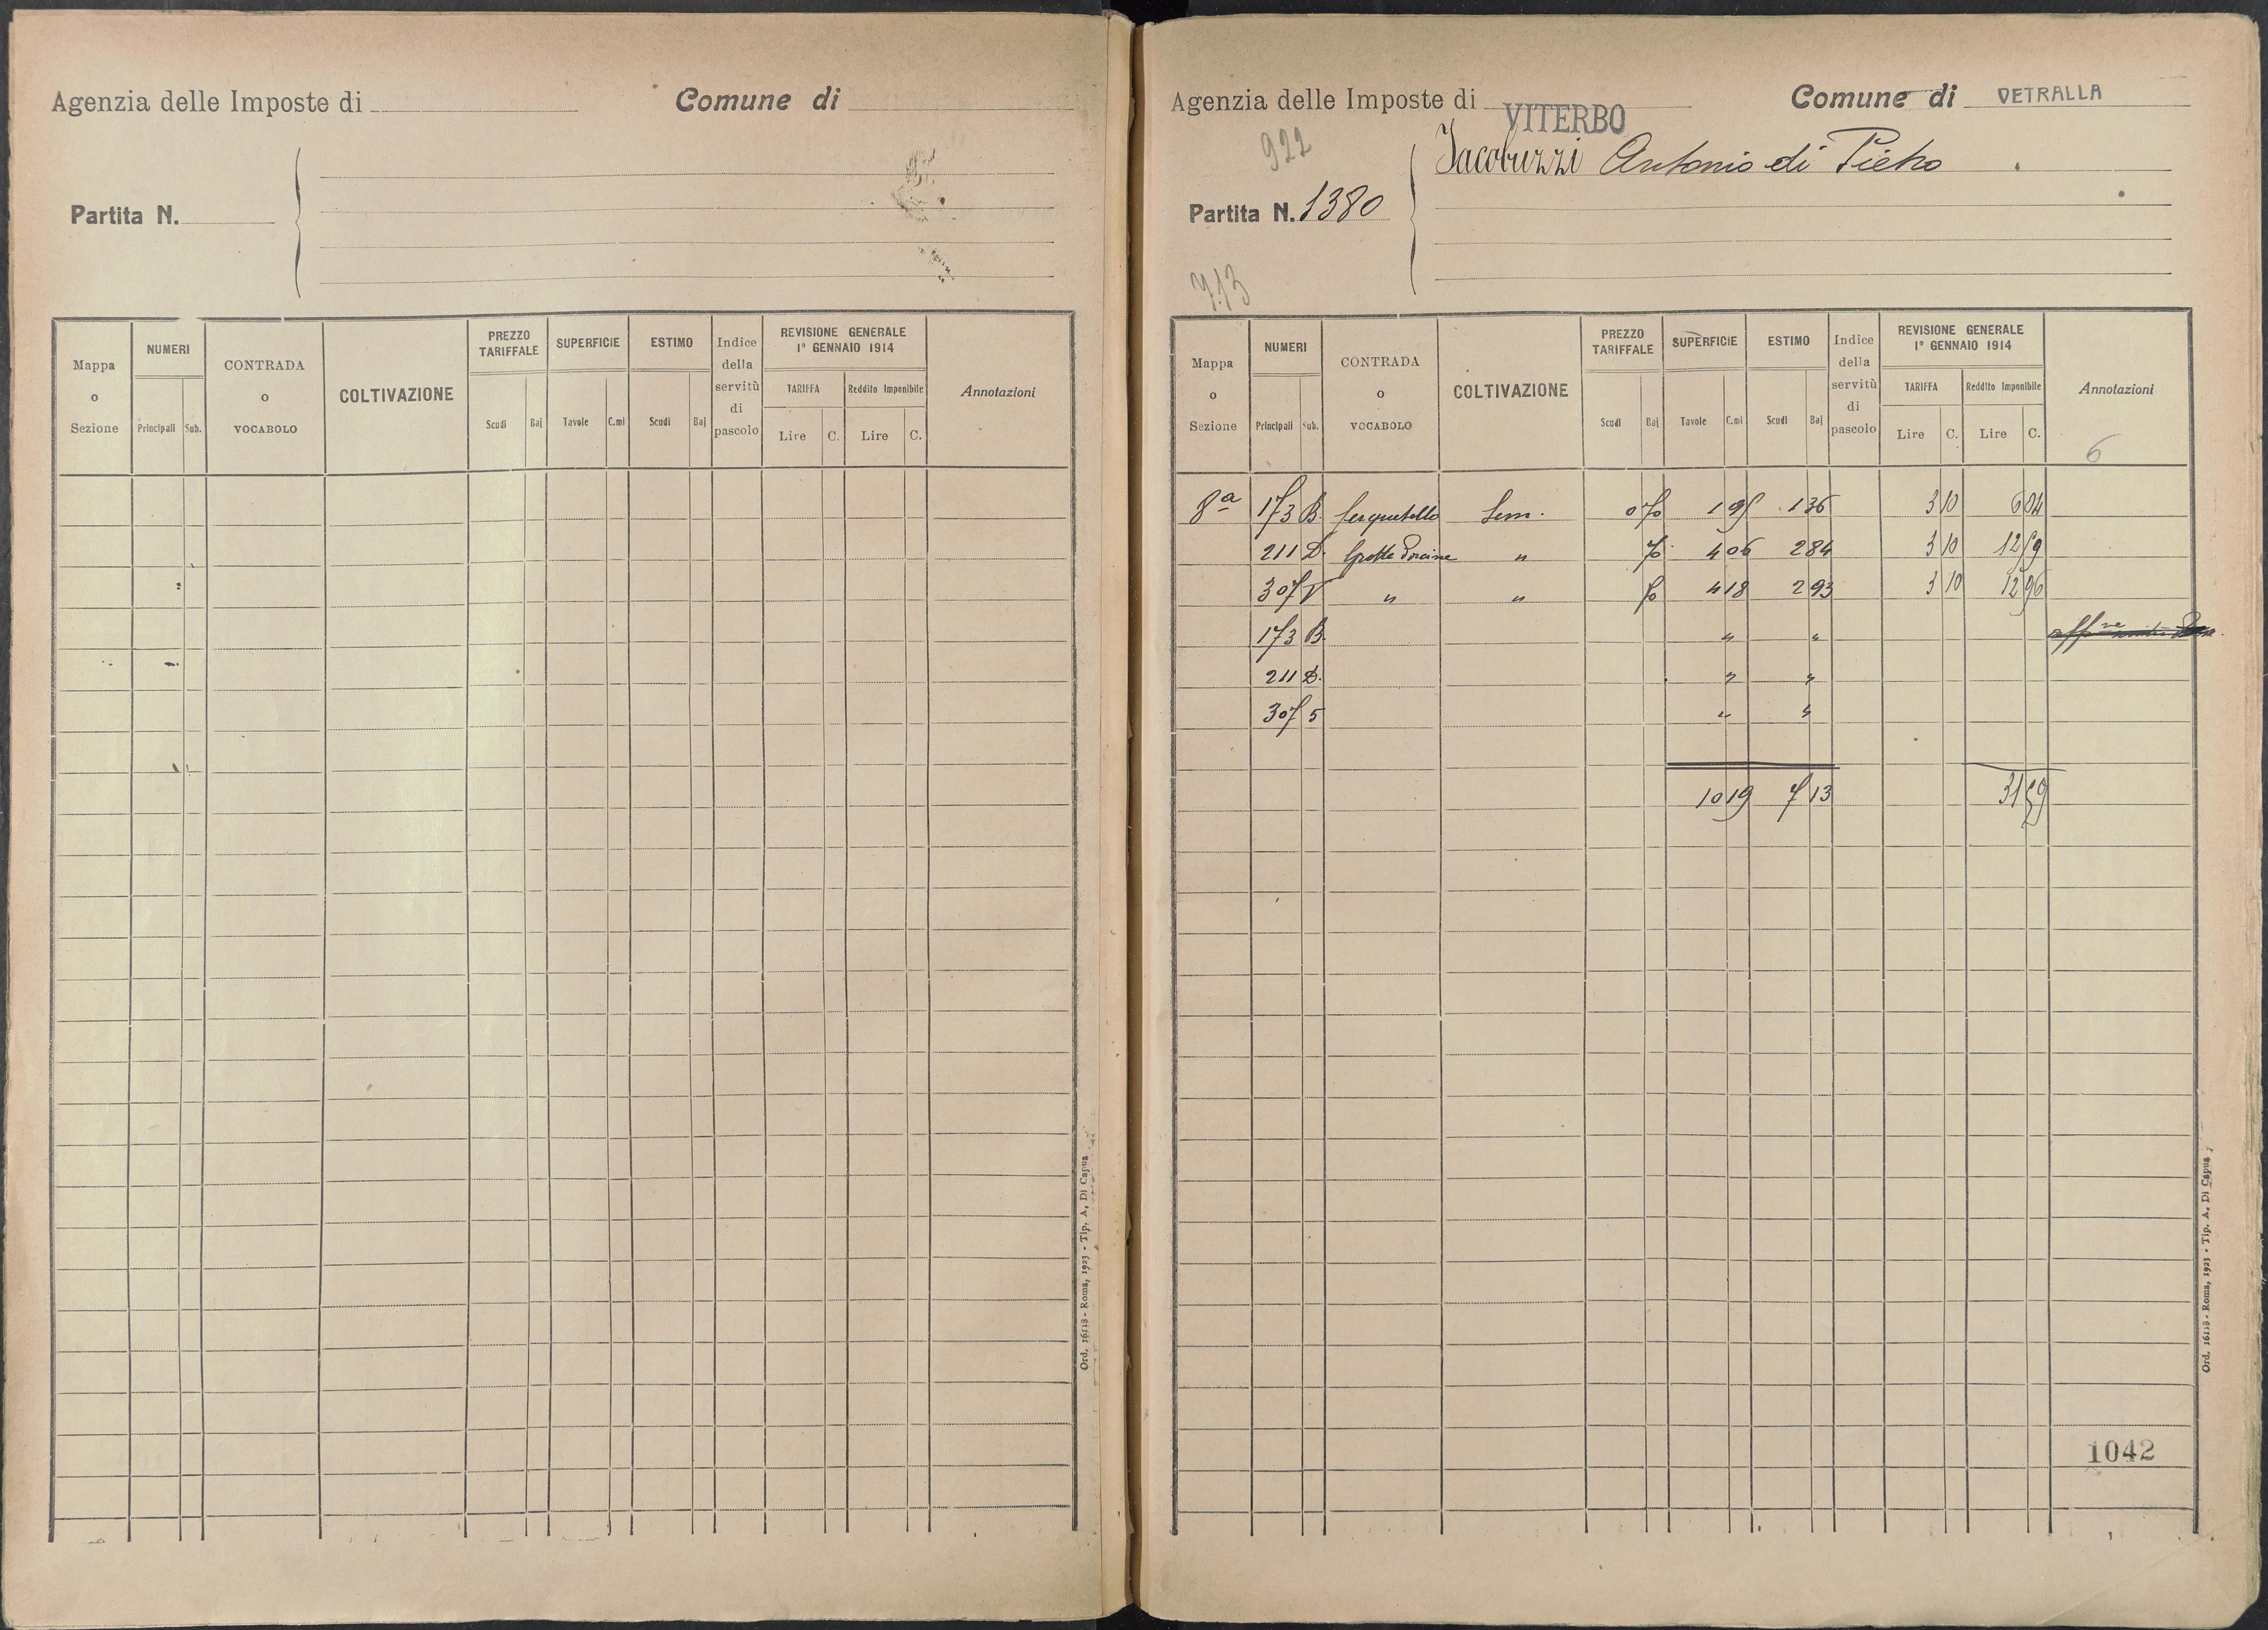 Agenzia delle Imposte di
Comune di
Partita N.
Mappa o Sezione
NUMERI
Principali Sub.
CONTRADA o VOCABOLO
COLTIVAZIONE
PREZZO TARIFFALE
Scudi Baj
SUPERFICIE
Tavole C.mi
ESTIMO
Scudi Baj
Indice della servitù di pascolo
REVISIONE GENERALE
1° GENNAIO 1914
TARIFFA Reddito Imponibile
Lire C. Lire C.
Annotazioni
Ord. 16118 - Roma, 1923 - Tip. A. Di Capua
Agenzia delle Imposte di VITERBO
Comune di VETRALLA
922
Jacobuzzi Antonio di Pietro
Partita N. 1380
713
Mappa o Sezione
NUMERI
Principali Sub.
CONTRADA o VOCABOLO
COLTIVAZIONE
PREZZO TARIFFALE
Scudi Baj
SUPERFICIE
Tavole C.mi
ESTIMO
Scudi Baj
Indice della servitù di pascolo
REVISIONE GENERALE
1° GENNAIO 1914
TARIFFA Reddito Imponibile
Lire C. Lire C.
Annotazioni
6
8ª 173 B. Cerquetello Sem. 0 70 1 95 1 36 3 10 6 04
211 D. Grotte Porcine " 70 4 06 2 84 3 10 12 59
307 " " 70 4 18 2 93 3 10 12 96
173 B. " "
211 D. " "
307 5 " "
10 19 7 13 31 59
1042
Ord. 16118 - Roma, 1923 - Tip. A. Di Capua